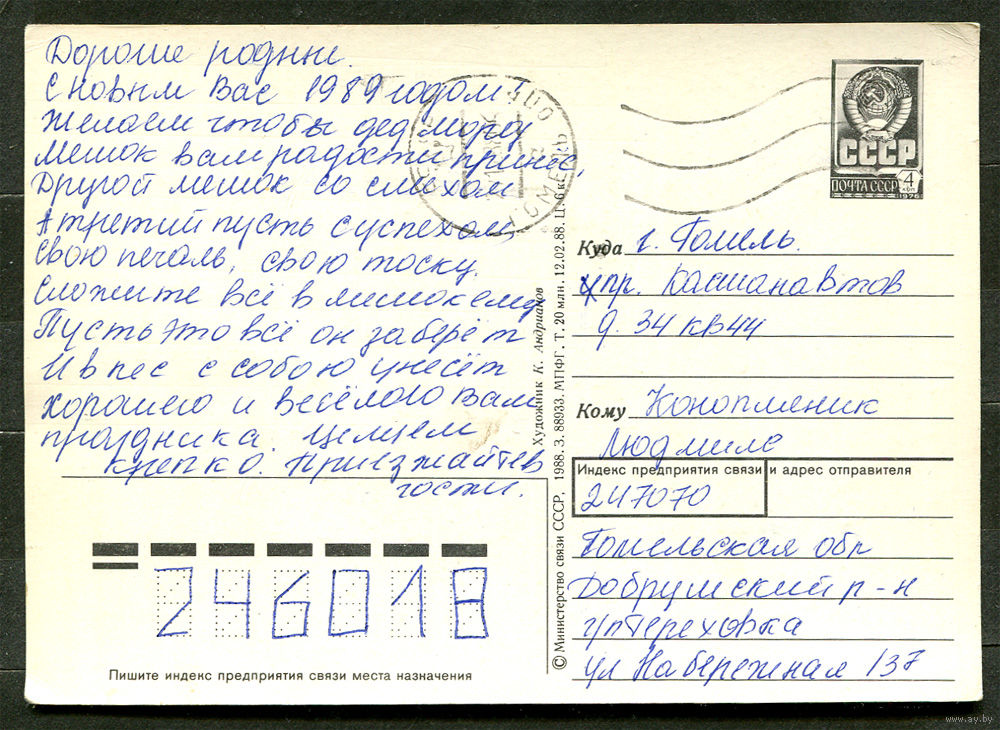 Дорогие родные.
С новым Вас 1989 годом!
Желаем чтобы дед мороз
Мешок вам радости принёс,
Другой мешок со смехом
А третий пусть с успехом,
Свою печаль, свою тоску.
Сложите всё в мешок ему
Пусть это всё он заберёт
И в лес с собою унесёт
Хорошего и весёлого Вам
праздника. Целуем
крепко. Приезжайте в
гости.
ГОМЕЛЬ
СССР
ПОЧТА СССР
4
КОП
1976
Куда г. Гомель.
пр. Космонавтов
д. 34 кв 44
Кому Коноплменик
Людмиле
Индекс предприятия связи и адрес отправителя
247070
Гомельская обл
Добрушский р-н
г/п Тереховка
ул Набережная 137
246018
Пишите индекс предприятия связи места назначения
© Министерство связи СССР, 1988. З. 88933. МПФГ. Т. 20 млн. 12.02.88. Ц. 6 к.
Художник К. Андрианов
www.ay.by